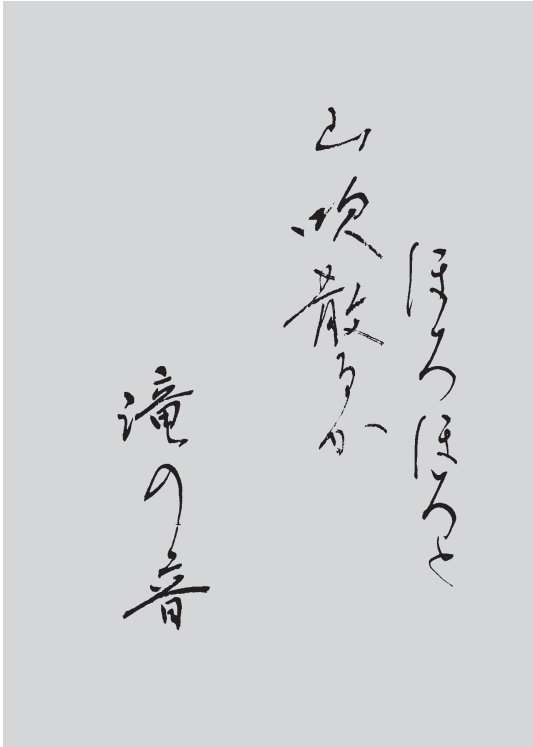 ほろほろと
山吹散るか
滝の音